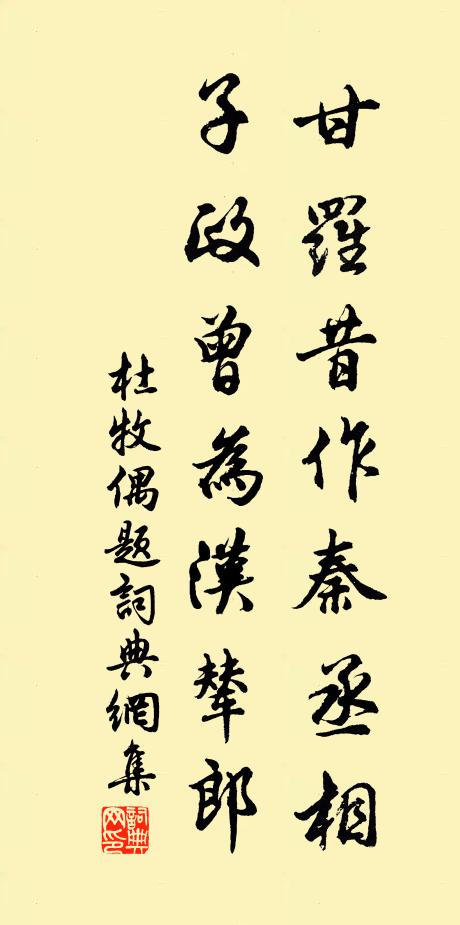 甘羅昔作秦丞相
子政曾為漢輦郎
杜牧偶題詞典網集
詞典網印